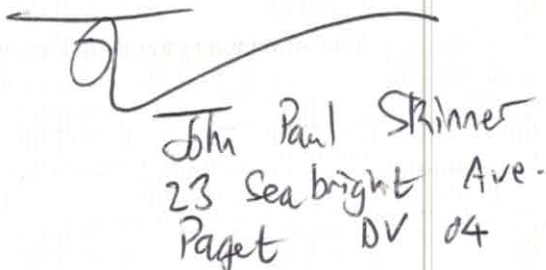 John Paul Skinner
23 Seabright Ave.
Paget DV 04